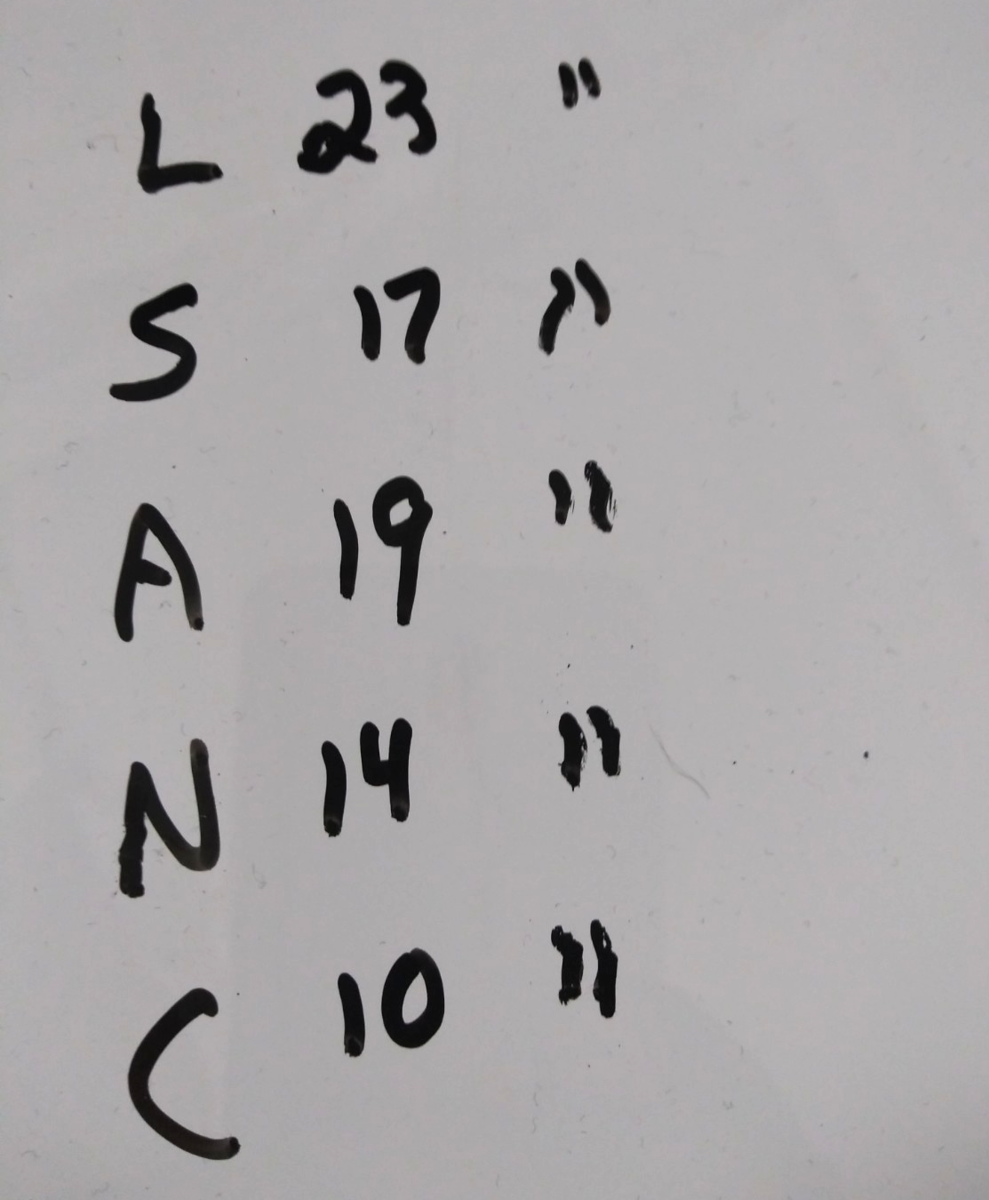 L 23 "
S 17 "
A 19 "
N 14 "
C 10 "